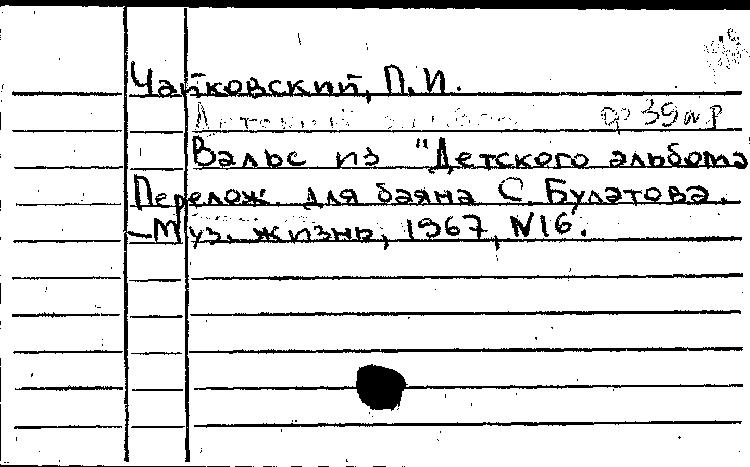 Чайковский, П.И.
Детский альбом ор 39 № 8
Вальс из "Детского альбома
Перелож. для баяна С. Булатова.
— Муз. жизнь, 1967, N16.